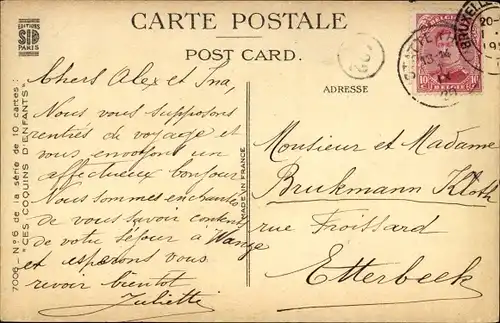 CARTE POSTALE
POST CARD.
ADRESSE
EDITIONS
SID
PARIS
7006 - N° 6 de la série de 10 cartes :
"CES COQUINS D'ENFANTS"
MADE IN FRANCE
Chers Alex et Ina,
Nous vous supposons
rentrés de voyage et
vous envoyons un
affectueux bonjour
Nous sommes enchantés
de vous savoir contents
de votre séjour à Wange
et espérons vous
revoir bientôt
Juliette
Monsieur et Madame
Brukmann Kloth
rue Froissard
Etterbeek
BELGIE
10 10
BELGIQUE
BRUXELLES
20-
1
19
13-14